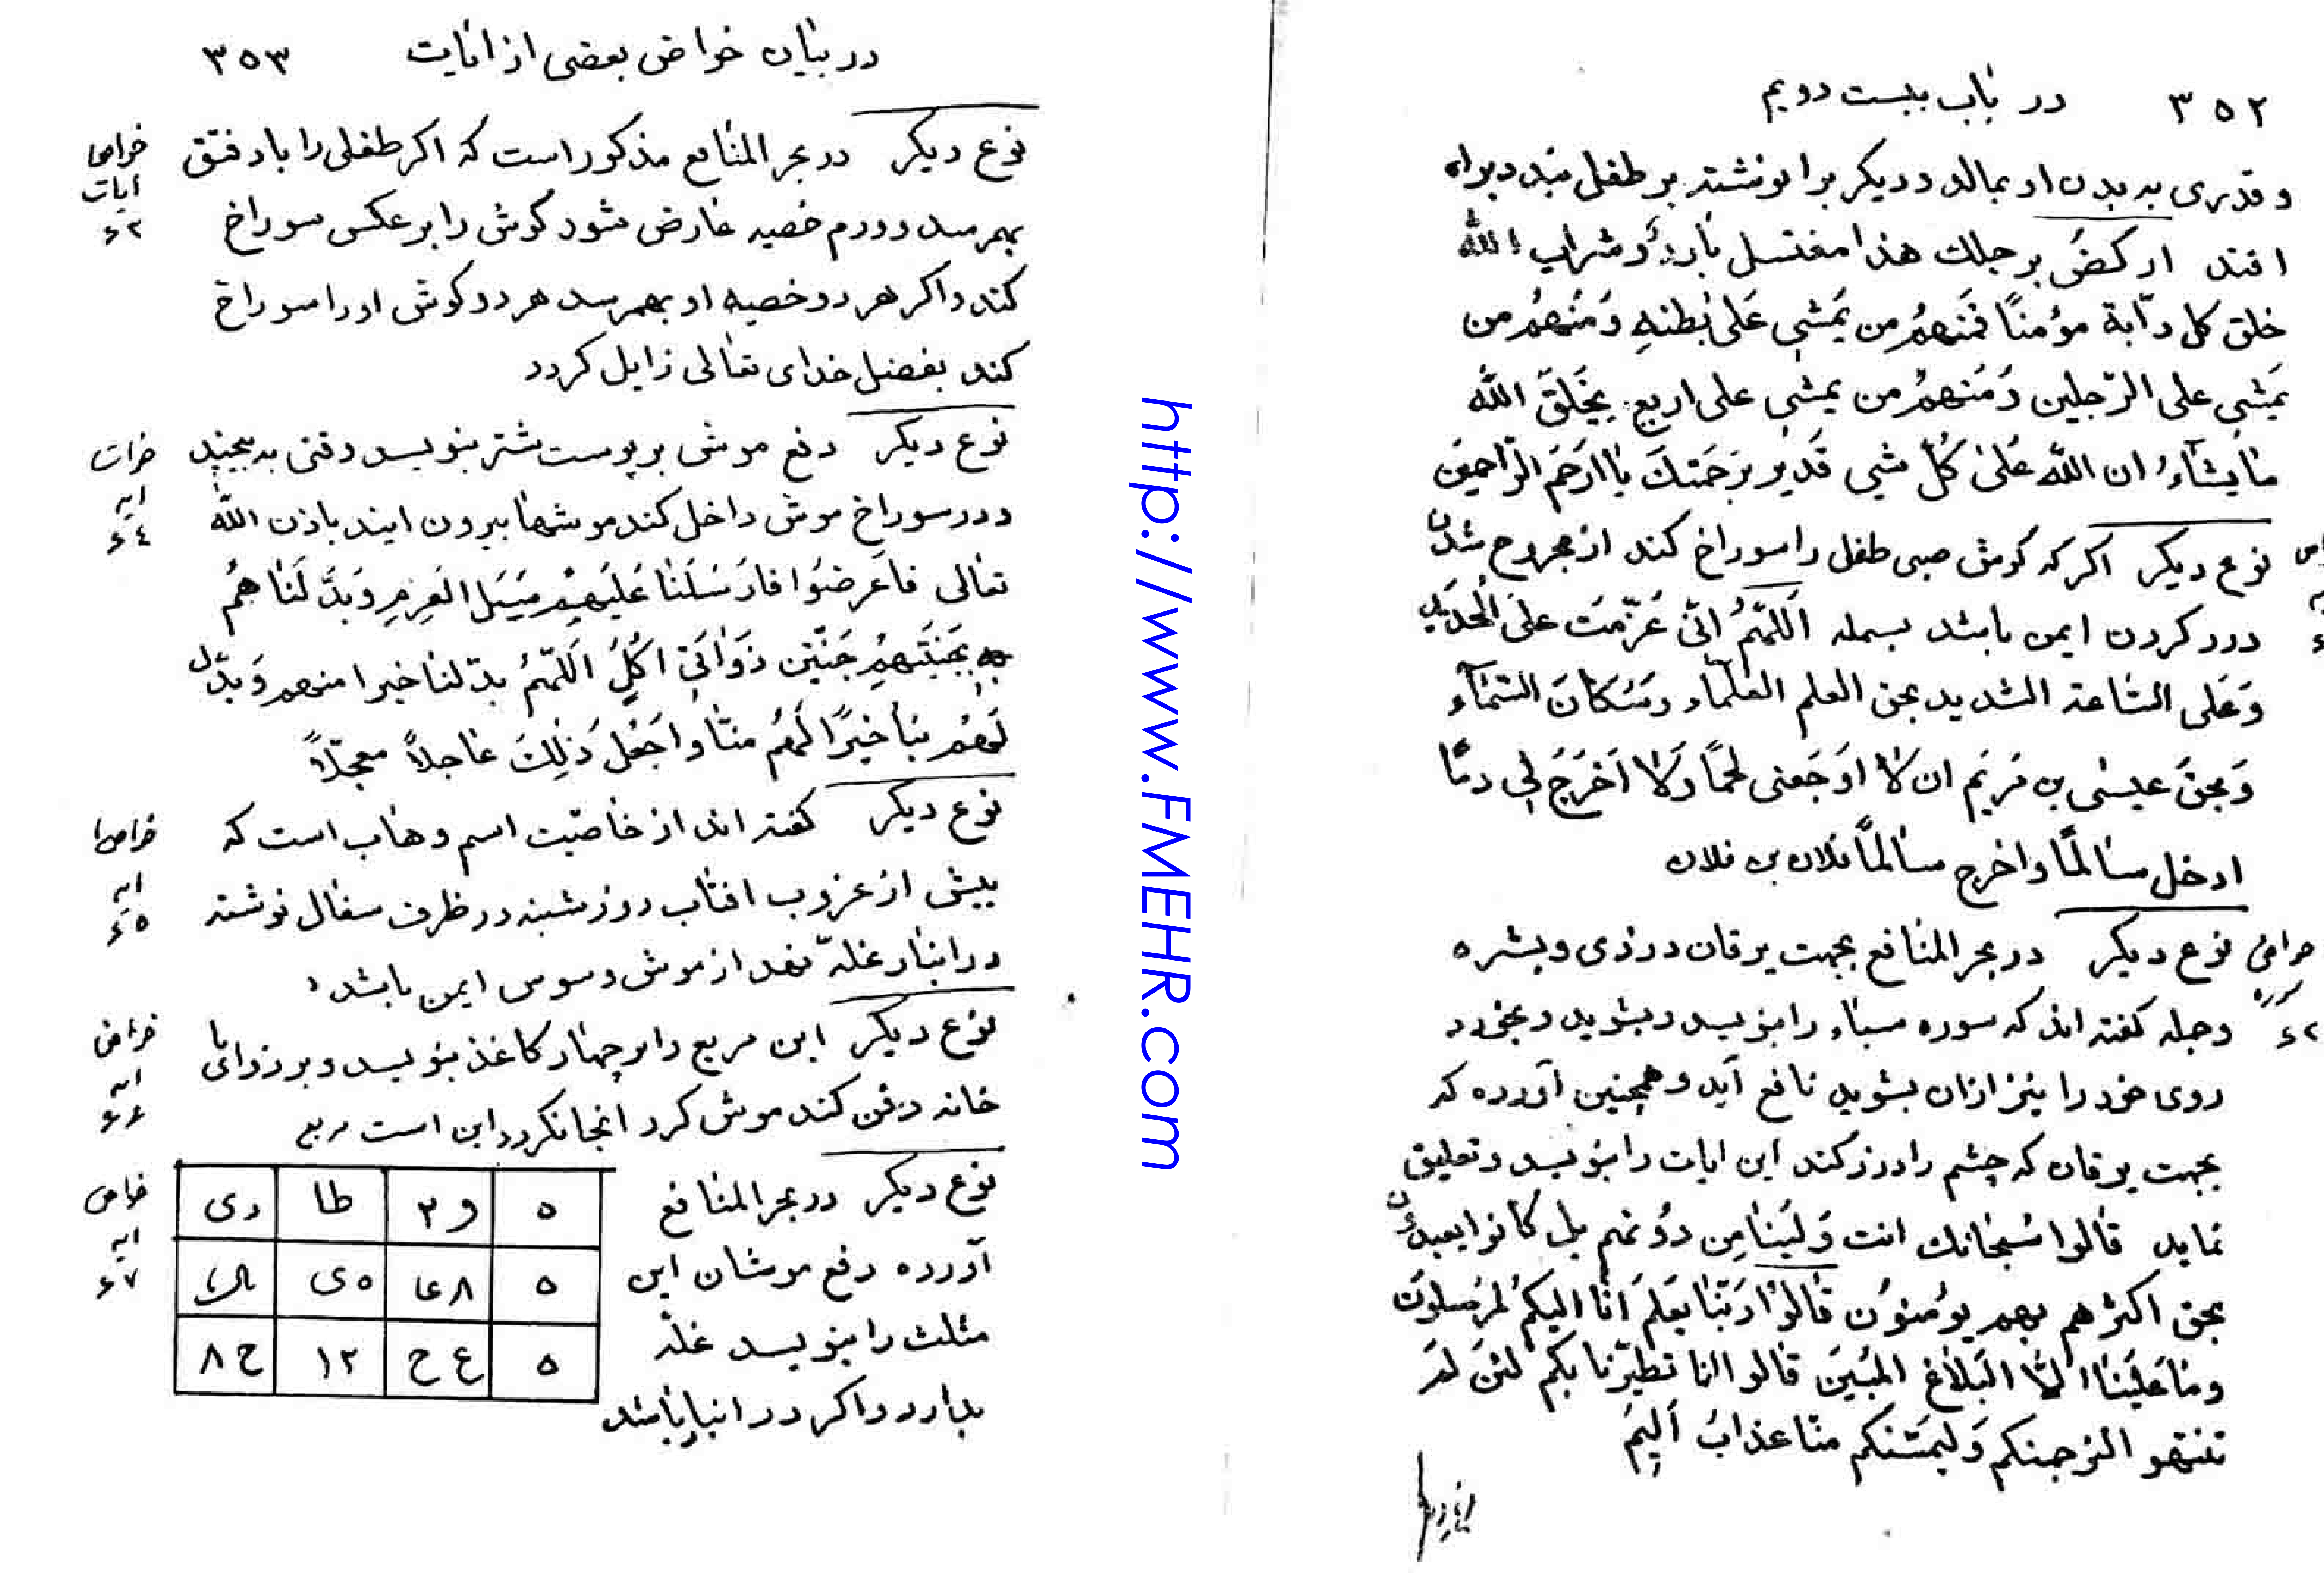 ۳۵۲ در باب بیست دویم
و قدری بر بدن او بمالد و دیکر برا نوشته بر طفل بندد براه
افتد ارکض برجلك هذا مغتسل بارد و شراب الله
خلق کل دآبة مؤمنًا فمنهم من یمشی علی بطنه و منهم من
یمشی علی الرّجلین و منهم من یمشی علی اربع یخلق الله
ما یشآء ان الله علی کل شی قدیر برحمتك یا ارحم الرّاحمین
نوع دیکر اکر که کوش صبی طفل را سوراخ کند از مجروح شدن
درد کردن ایمن باشد بسمله اللّهمّ انّی عزّمت علی الحدید
و علی السّاعة الشدید بحق العلم العلمآء و سکان السّمآء
و بحق عیسی بن مریم ان لا اوجعنی لحمًا و لا اخرج لی دمًا
ادخل سالمًا و اخرج سالمًا فلان بن فلان
نوع دیکر در بحر المنافع بجهت یرقان و زردی و بشره
وجمله کفته اند که سوره سباء را بنویسد و بشوید و بخورد
روی خود را نیز ازان بشوید نافع آید و همچنین آورده که
بجهت یرقان که چشم را زرد کند این ایات را بنویسد و تعلیق
نماید قالوا سبحانك انت ولینا من دونهم بل کانوا یعبدون
بحق اکثرهم بهم یؤمنون قالوا ربّنا یعلم انّا الیکم لمرسلون
و ما علینا الّا البلاغ المبین قالوا انا تطیّرنا بکم لئن لم
تنتهو النرجمنکم و لیمسّنکم منّا عذاب الیم
http://www.FMEHR.com
در بیان خواص بعضی از ایات ۳۵۳
نوع دیکر در بحر المنافع مذکور است که اکر طفلی را باد فتق
بهمرسد و ورم خصیه عارض شود کوش را بر عکس سوراخ
کند و اکر هر دو خصیه او بهمرسد هر دو کوش او را سوراخ
کند بفضل خدای تعالی زایل کردد
نوع دیکر دفع موش بر پوست شتر بنویسد وقتی به پیچد
و در سوراخ موش داخل کند موشها بیرون ایند باذن الله
تعالی فاعرضوا فارسلنا علیهم سیل العرم و بدّلناهم
بجنتیهم جنّتین ذواتی اکل اللّهمّ بدّلنا خیرا منهم و بدّل
لهم بنا خیرًا لهم منّا و اجعل ذلك عاجلاً معجّلاً
نوع دیکر کفته اند از خاصّیت اسم وهاب است که
پیش از غروب افتاب روز شنبه در ظرف سفال نوشته
در انبار غلّه نهد از موش و سوس ایمن باشد
نوع دیکر این مربع را بر چهار کاغذ بنویسد و بر زوایای
خانه دفن کند موش کرد انجا نکردد این است مربع
نوع دیکر در بحر المنافع
آورده دفع موشان این
مثلث را بنویسد غلّه
بدارد و اکر در انبار باشد
۵ و ۲ طا دی
۵ ۸ عا ۵ی
۵ ع ح ۱۲ ح ۸
خواص ایات ۶۲
ایه ۶۴
ایه ۶۵
ایه ۶۶
خواص ایه ۶۷